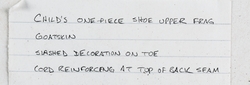 CHILD'S ONE-PIECE SHOE UPPER FRAG
GOATSKIN
SLASHED DECORATION ON TOE
CORD REINFORCING AT TOP OF BACK SEAM